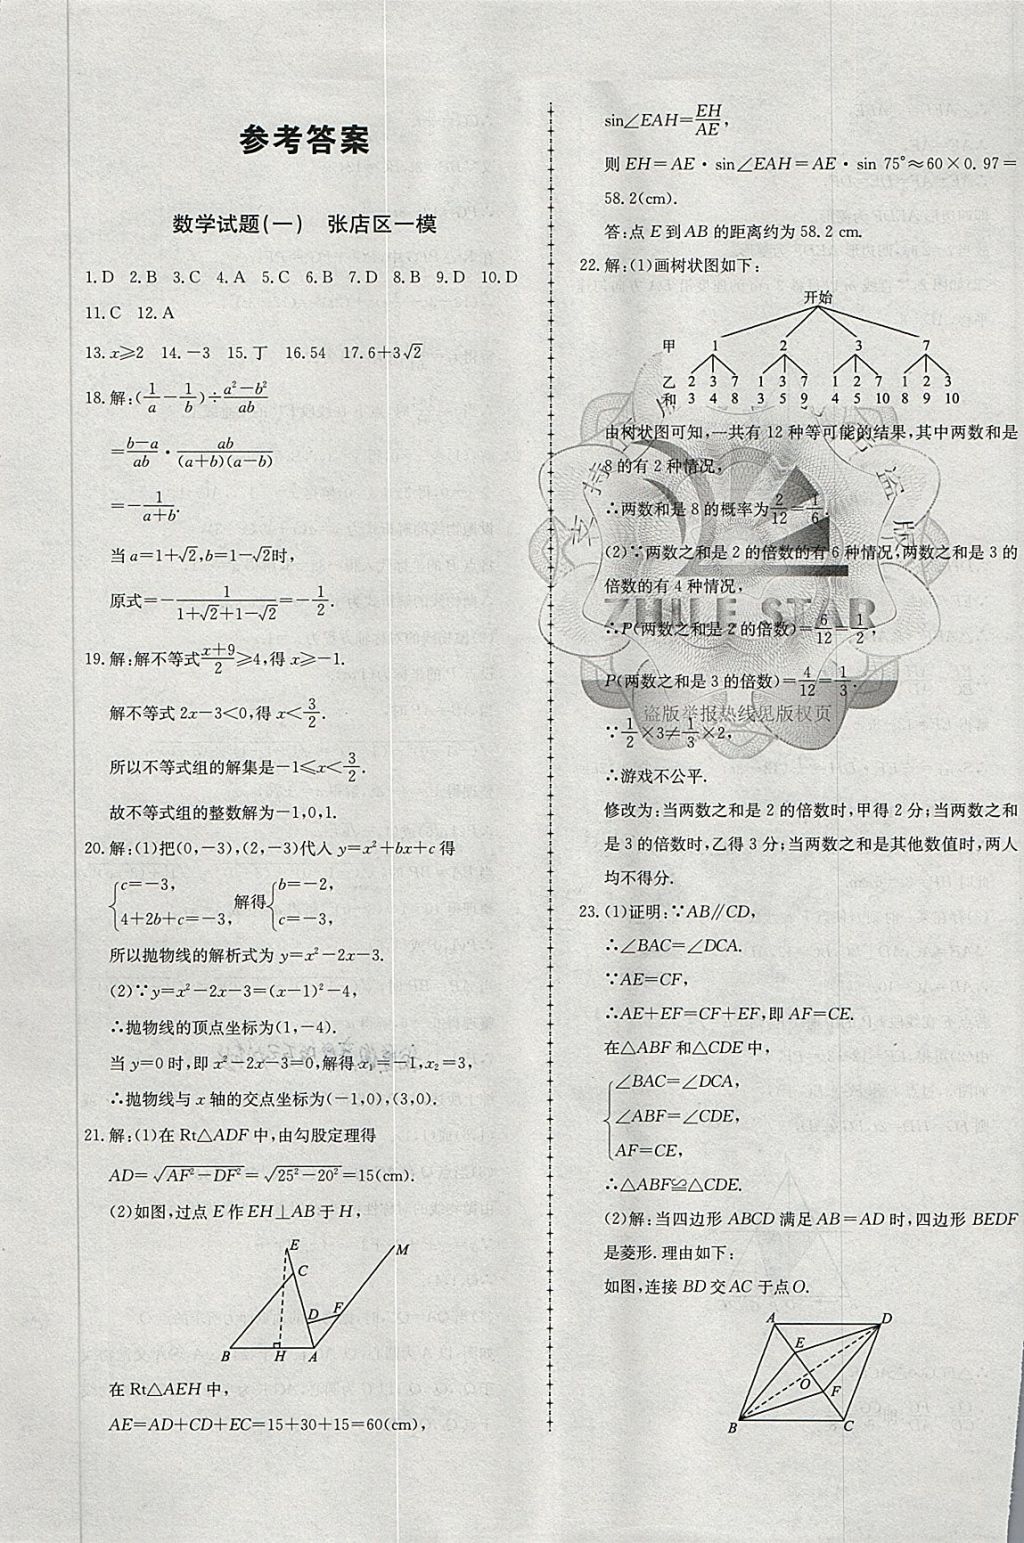 参考答案
数学试题(一) 张店区一模
1.D 2.B 3.C 4.A 5.C 6.B 7.D 8.B 9.D 10.D
11.C 12.A
13.x≥2 14.-3 15.丁 16.54 17.6+3√2
18.解:(1/a-1/b)÷(a²-b²)/ab
=(b-a)/ab·ab/((a+b)(a-b))
=-1/(a+b).
当a=1+√2,b=1-√2时,
原式=-1/(1+√2+1-√2)=-1/2.
19.解:解不等式(x+9)/2≥4,得x≥-1.
解不等式2x-3<0,得x<3/2.
所以不等式组的解集是-1≤x<3/2.
故不等式组的整数解为-1,0,1.
20.解:(1)把(0,-3),(2,-3)代入y=x²+bx+c得
{c=-3, 4+2b+c=-3, 解得{b=-2, c=-3,
所以抛物线的解析式为y=x²-2x-3.
(2)∵y=x²-2x-3=(x-1)²-4,
∴抛物线的顶点坐标为(1,-4).
当y=0时,即x²-2x-3=0,解得x₁=-1,x₂=3,
∴抛物线与x轴的交点坐标为(-1,0),(3,0).
21.解:(1)在Rt△ADF中,由勾股定理得
AD=√(AF²-DF²)=√(25²-20²)=15(cm).
(2)如图,过点E作EH⊥AB于H,
E M
C
D F
B H A
在Rt△AEH中,
AE=AD+CD+EC=15+30+15=60(cm),
sin∠EAH=EH/AE,
则EH=AE·sin∠EAH=AE·sin 75°≈60×0.97=
58.2(cm).
答:点E到AB的距离约为58.2 cm.
22.解:(1)画树状图如下:
开始
甲 1 2 3 7
乙 2 3 7 1 3 7 1 2 7 1 2 3
和 3 4 8 3 5 9 4 5 10 8 9 10
由树状图可知,一共有12种等可能的结果,其中两数和是
8的有2种情况,
∴两数和是8的概率为2/12=1/6.
(2)∵两数之和是2的倍数的有6种情况,两数之和是3的
倍数的有4种情况,
ZHULE STAR
∴P(两数之和是2的倍数)=6/12=1/2,
P(两数之和是3的倍数)=4/12=1/3.
盗版举报热线见版权页
∵1/2×3≠1/3×2,
∴游戏不公平.
修改为:当两数之和是2的倍数时,甲得2分;当两数之和
是3的倍数时,乙得3分;当两数之和是其他数值时,两人
均不得分.
23.(1)证明:∵AB∥CD,
∴∠BAC=∠DCA.
∵AE=CF,
∴AE+EF=CF+EF,即AF=CE.
在△ABF和△CDE中,
{∠BAC=∠DCA,
∠ABF=∠CDE,
AF=CE,
∴△ABF≌△CDE.
(2)解:当四边形ABCD满足AB=AD时,四边形BEDF
是菱形.理由如下:
如图,连接BD交AC于点O.
A D
E
O
F
B C